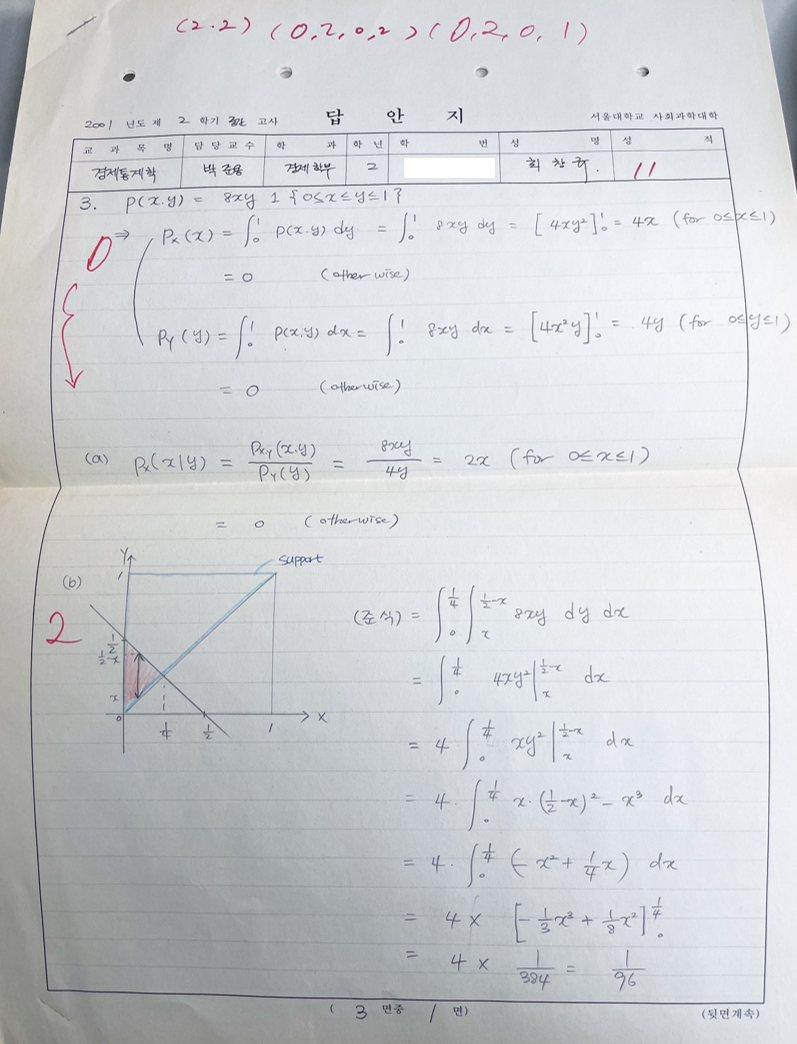 (2.2) (0,2,0,2) (0,2,0,1)
2001 년도 제 2 학기 고사 답 안 지 서울대학교 사회과학대학
교 과 목 명 담 당 교 수 학 과 학 년 학 번 성 명 성 적
경제통계학 박준용 경제학부 2 최창규. 11
3. p(x.y) = 8xy 1{0≤x≤y≤1}
0 ⇒ Px(x) = ∫₀¹ p(x.y) dy = ∫₀¹ 8xy dy = [4xy²]₀¹ = 4x (for 0≤x≤1)
= 0 (otherwise)
PY(y) = ∫₀¹ p(x,y) dx = ∫₀¹ 8xy dx = [4x²y]₀¹ = 4y (for 0≤y≤1)
= 0 (otherwise)
(a) Px(x|y) = Px,Y(x.y)/PY(y) = 8xy/4y = 2x (for 0≤x≤1)
= 0 (otherwise)
(b) Y 1 support
2
1/2
1/2-x
x
0 1/4 1/2 1 X
(준식) = ∫₀^{1/4} ∫ₓ^{1/2-x} 8xy dy dx
= ∫₀^{1/4} 4xy²|ₓ^{1/2-x} dx
= 4 ∫₀^{1/4} xy²|ₓ^{1/2-x} dx
= 4 · ∫₀^{1/4} x·(1/2-x)² - x³ dx
= 4 · ∫₀^{1/4} (-x² + 1/4x) dx
= 4 × [-1/3x³ + 1/8x²]₀^{1/4}
= 4 × 1/384 = 1/96
( 3 면중 1 면) (뒷면계속)